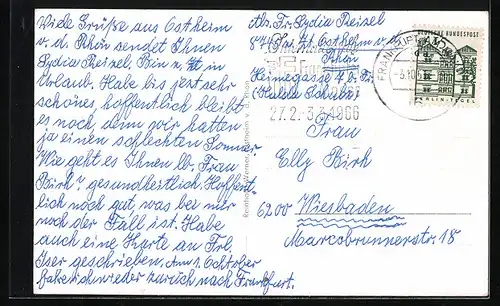 Viele Grüße aus Ostheim
v. d. Rhön sendet Ihnen
Lydia Reisel. Bin z. Zt. in
Urlaub. Habe bis jetzt sehr
schönes, hoffentlich bleibt
es noch, denn wir hatten
ja einen schlechten Sommer.
Wie geht es Ihnen lb. Frau
Birk? gesundheitlich, Hoffent-
lich noch gut, was bei mir
noch der Fall ist. Habe
auch eine Karte an Frl.
Iser geschrieben. Am 1. Octtober
fahre ich wieder zurück nach Frankfurt.
Abs. Fr. Lydia Reisel
874 z. Zt. Ostheim v. d.
Rhön
27.2.-3.3.1966
Frau
Elly Birk
6200 Wiesbaden
Marcobrunnerstr. 18
DEUTSCHE BUNDESPOST
BERLIN-TEGEL
FRANKFURT